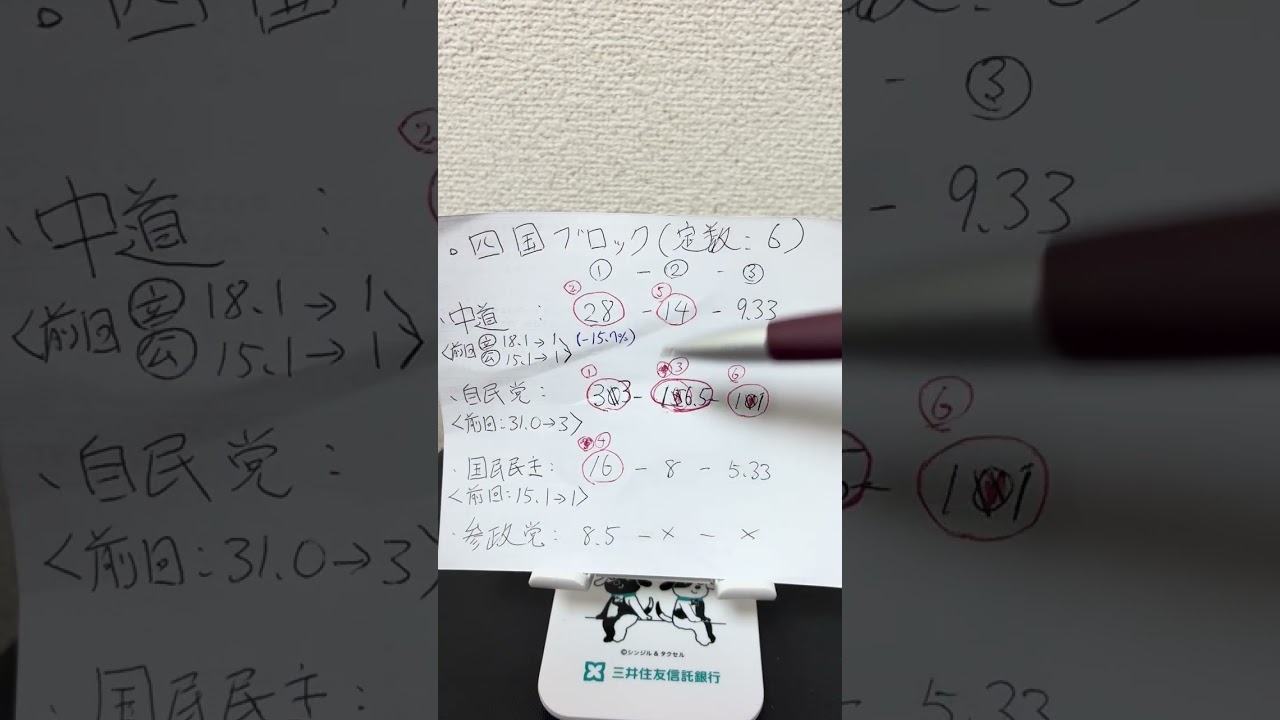 。四国ブロック(定数:6)
① - ② - ③
② ⑤
、中道 : 28 - 14 - 9.33
<前回 立 18.1→1 (-15.7%)
公 15.1→1>
① ③ ⑥
、自民党:
<前回:31.0→3>
④
・国民民主: 16 - 8 - 5.33
<前回:15.1→1>
・参政党: 8.5 - × - ×
©シンジル&タクセル
三井住友信託銀行